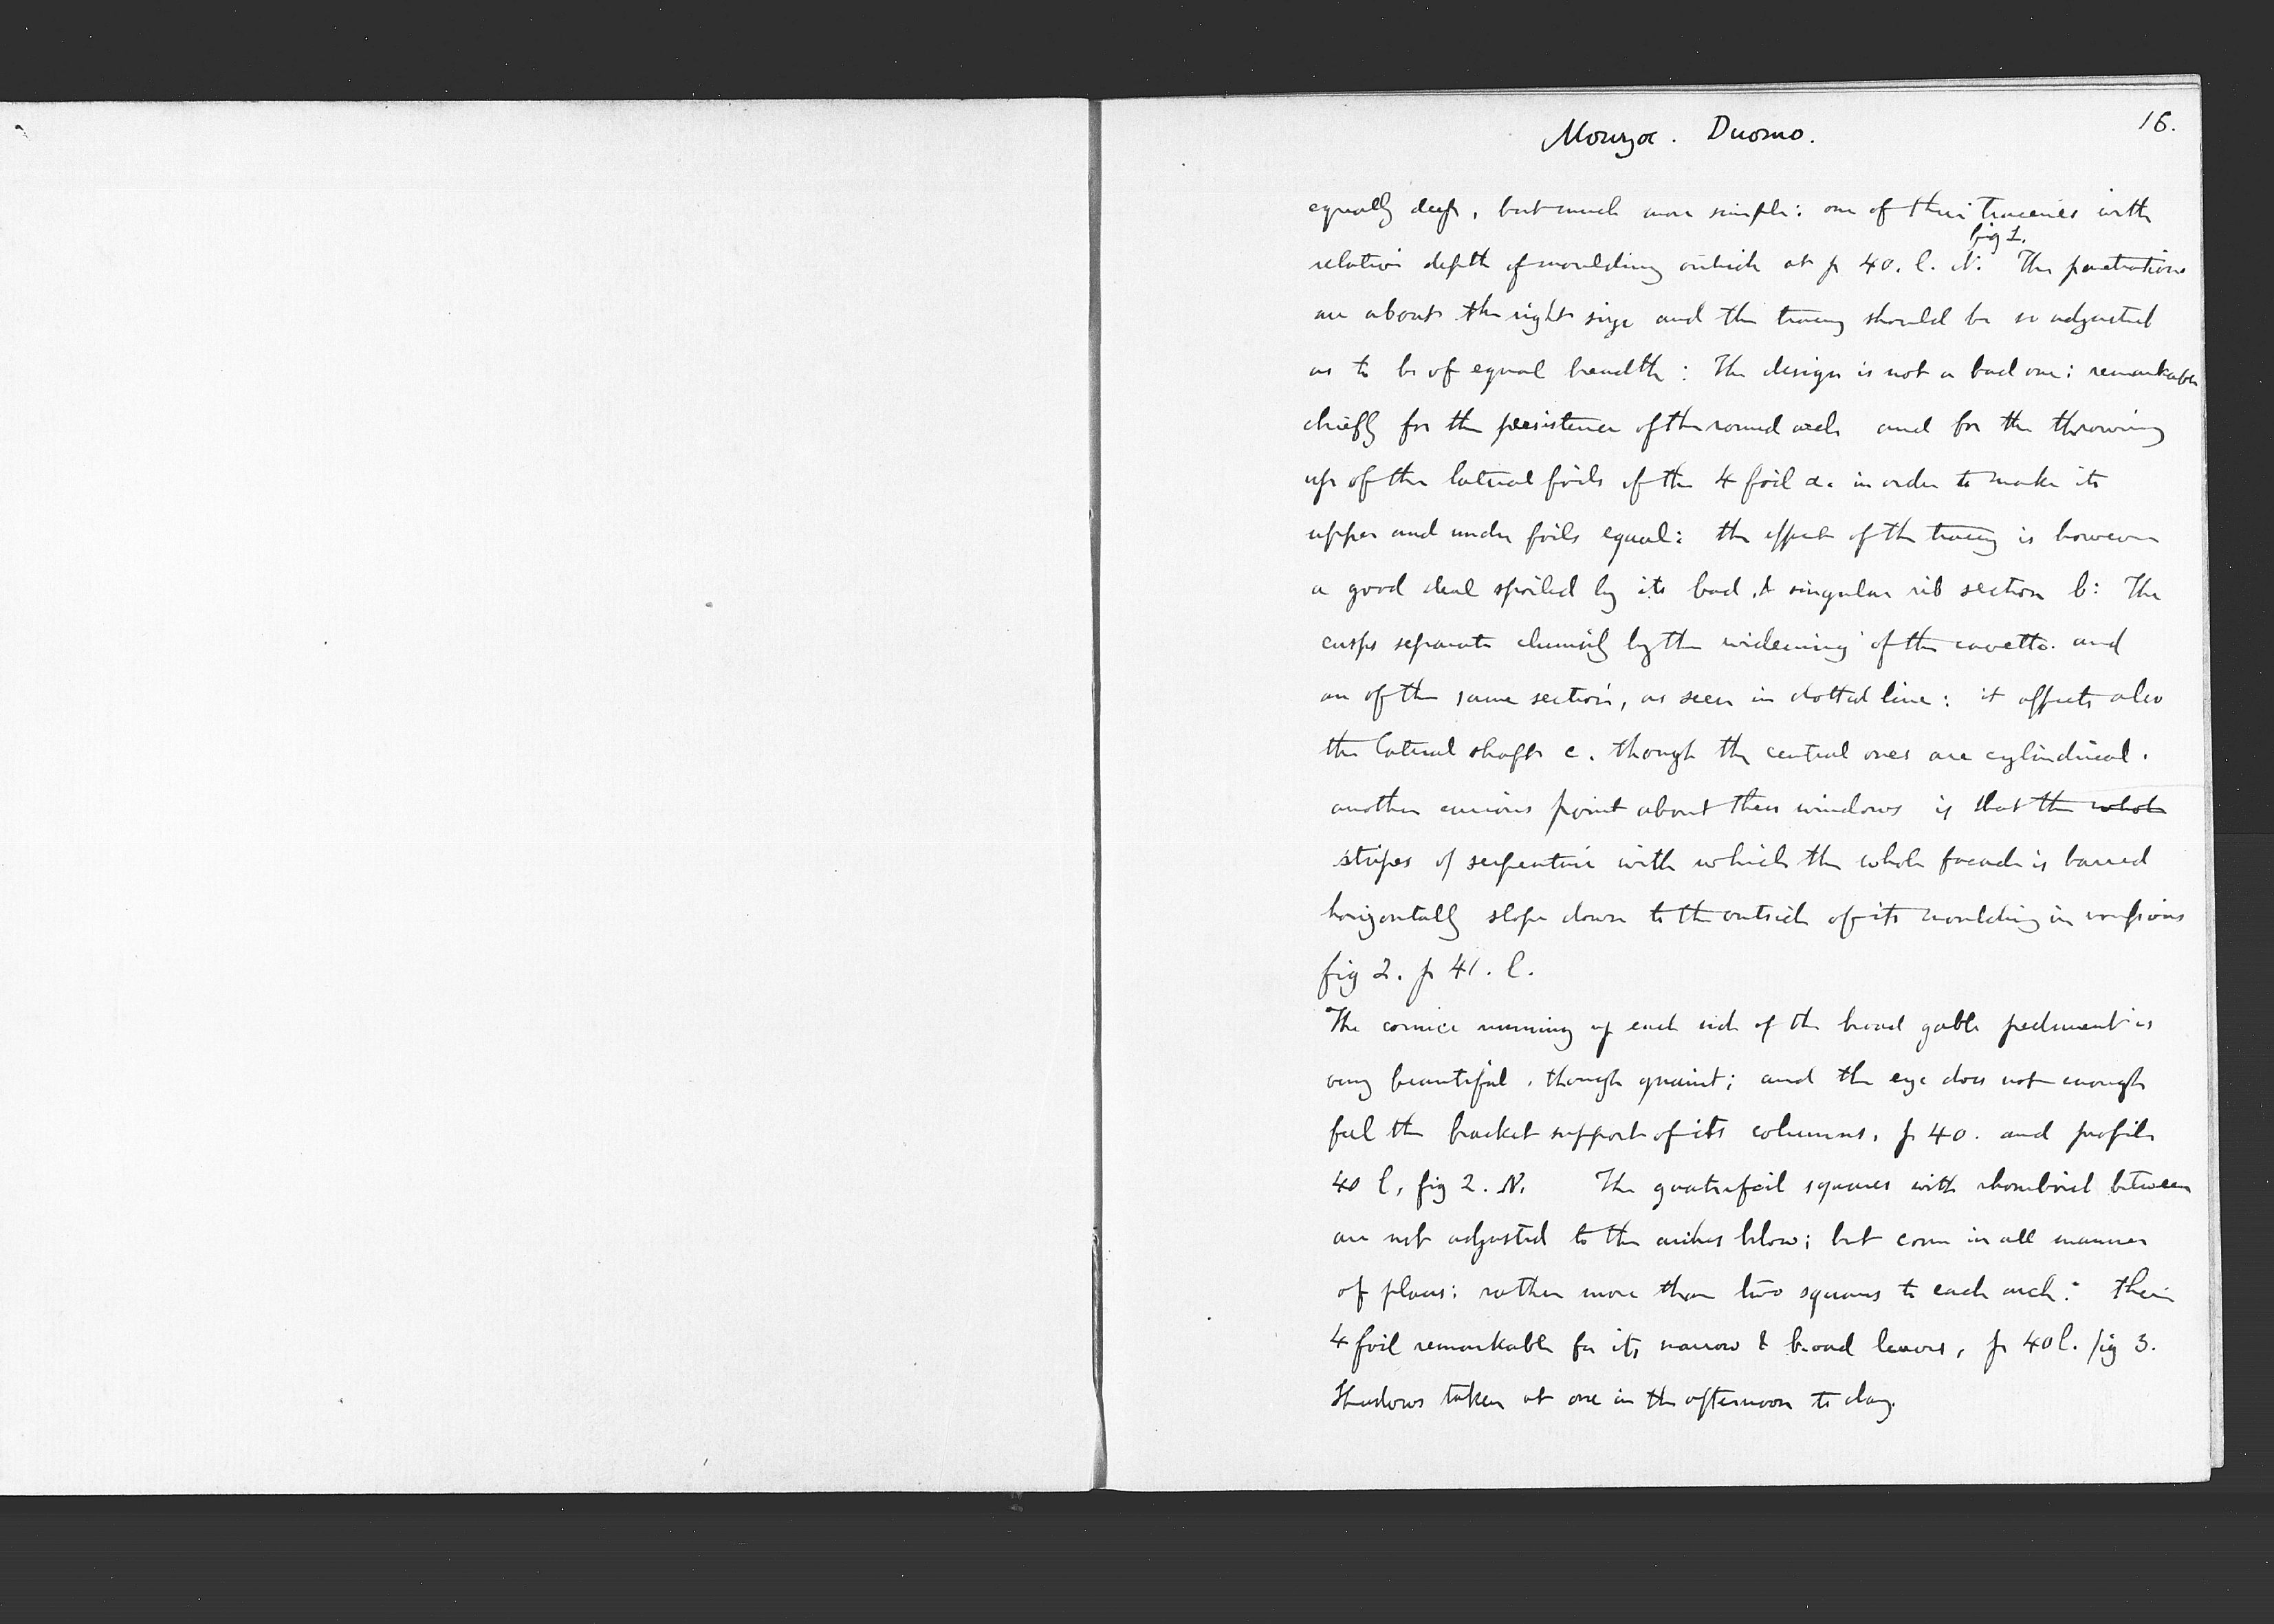 16.
Monza. Duomo.
equally deep, but much more simple: one of their traceries with
fig 1.
relative depth of moulding outside at p 40. l. N. The penetrations
are about the right size and the tracery should be so adjusted
as to be of equal breadth: The design is not a bad one: remarkable
chiefly for the persistence of the round arch and for the throwing
up of the lateral foils of the 4 foil a. in order to make its
upper and under foils equal: the effect of the tracery is however
a good deal spoiled by its bad, & singular rib section b: The
cusps separate clumsily by the widening of the cavetto. and
are of the same section, as seen in dotted line: it affects also
the lateral shafts c. though the central ones are cylindrical.
another curious point about these windows is that the whole
stripes of serpentine with which the whole facade is barred
horizontally slope down to the outside of its moulding in
fig 2. p 41. l.
The cornice running up each side of the broad gable pediment is
very beautiful, though quaint; and the eye does not enough
feel the bracket support of its columns, p 40. and profile
40 l, fig 2. N. The quatrefoil squares with rhomboid between
are not adjusted to the arches below; but come in all manner
of places: rather more than two squares to each arch: their
4 foil remarkable for its narrow & broad leaves, p 40 l. fig 3.
Shadows taken at one in the afternoon to day.